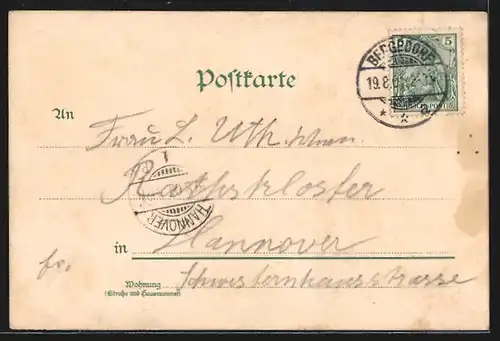 Postkarte
BERGEDORF
19.8.01
5
REICHSPOST
An
Frau L. Uth
HANNOVER
1
in Hannover
fr.
Schwesternhausstrasse
Wohnung
(Straße und Hausnummer)